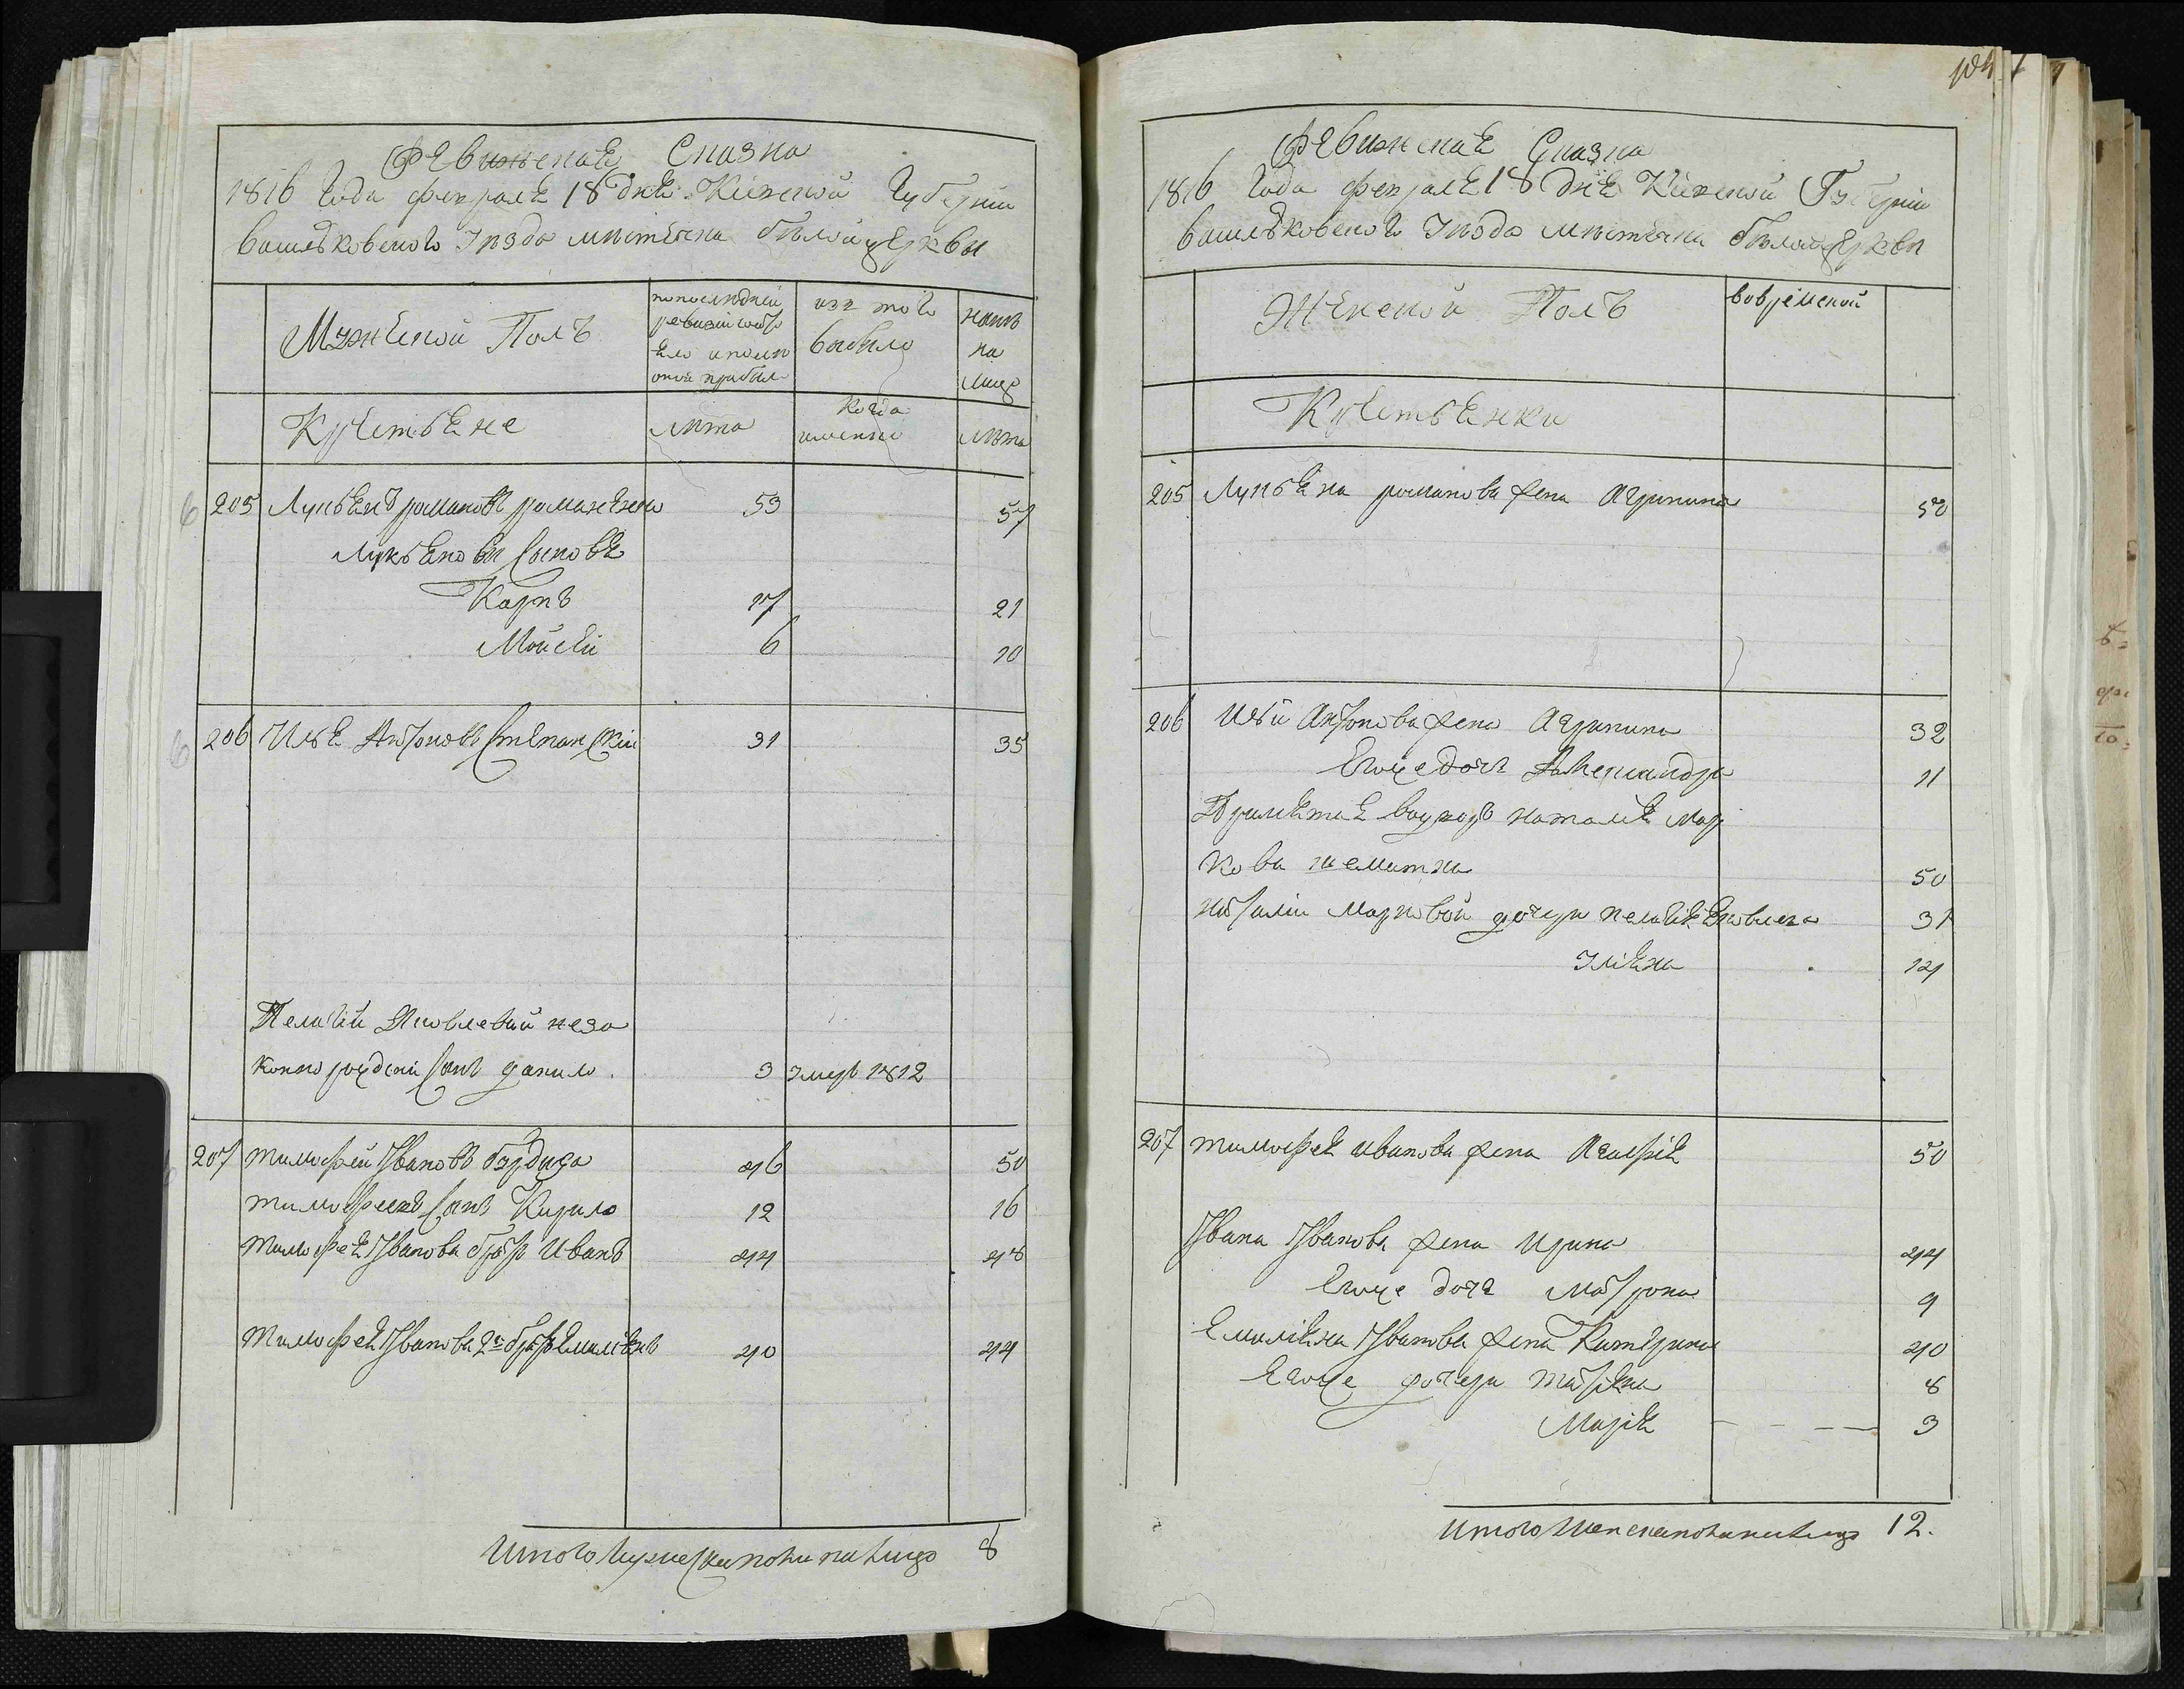 Ревижская Сказка
1816 Года февраля 18 дня Киевской Губернии
Васильковского Уезда местечка белой церкви
Мужеской Полъ
по последней
ревизии состо
яло и после
оной прибы-
изъ того
выбыло
ныне
на
лицо
Крестьяне
лета
когда
именно
лета
205 Лукьянъ романовъ романенко 53 57
Лукьяновы сыновья
Карпъ 17 21
Мойсей 6 10
206 Илья Антоновъ Степанский 31 35
Пелагии Яковлевой неза
конно рожденный сынъ данило 3 умеръ 1812
207 тимофей Ивановъ 46 50
тимофеевъ сынъ Кирило 12 16
тимофея Иванова братъ Иванъ 44 48
тимофея Иванова 2й братъ Емилиянъ 40 44
Итого мужеска пола на лицо 8
104
Ревижская Сказка
1816 Года февраля 18 дня Киевской Губернии
Васильковского Уезда местечка белой церкви
Женской Полъ
во временной
Крестьянки
205 Лукьяна романова жена Агрипина 50
206 Ильи Антонова жена Агрипина 32
Егоже дочь Александра 11
наталия Мар
кова 50
наталии Марковой дочери пелагия Яковлева 31
Улияна 14
207 тимофея иванова жена Агафия 50
Ивана Иванова жена Ирина 44
Егоже дочь Матрона 9
Емилияна Иванова жена Катерина 40
Егоже дочери татияна 8
Мария - - - - 3
Итого женска пола на лицо 12.